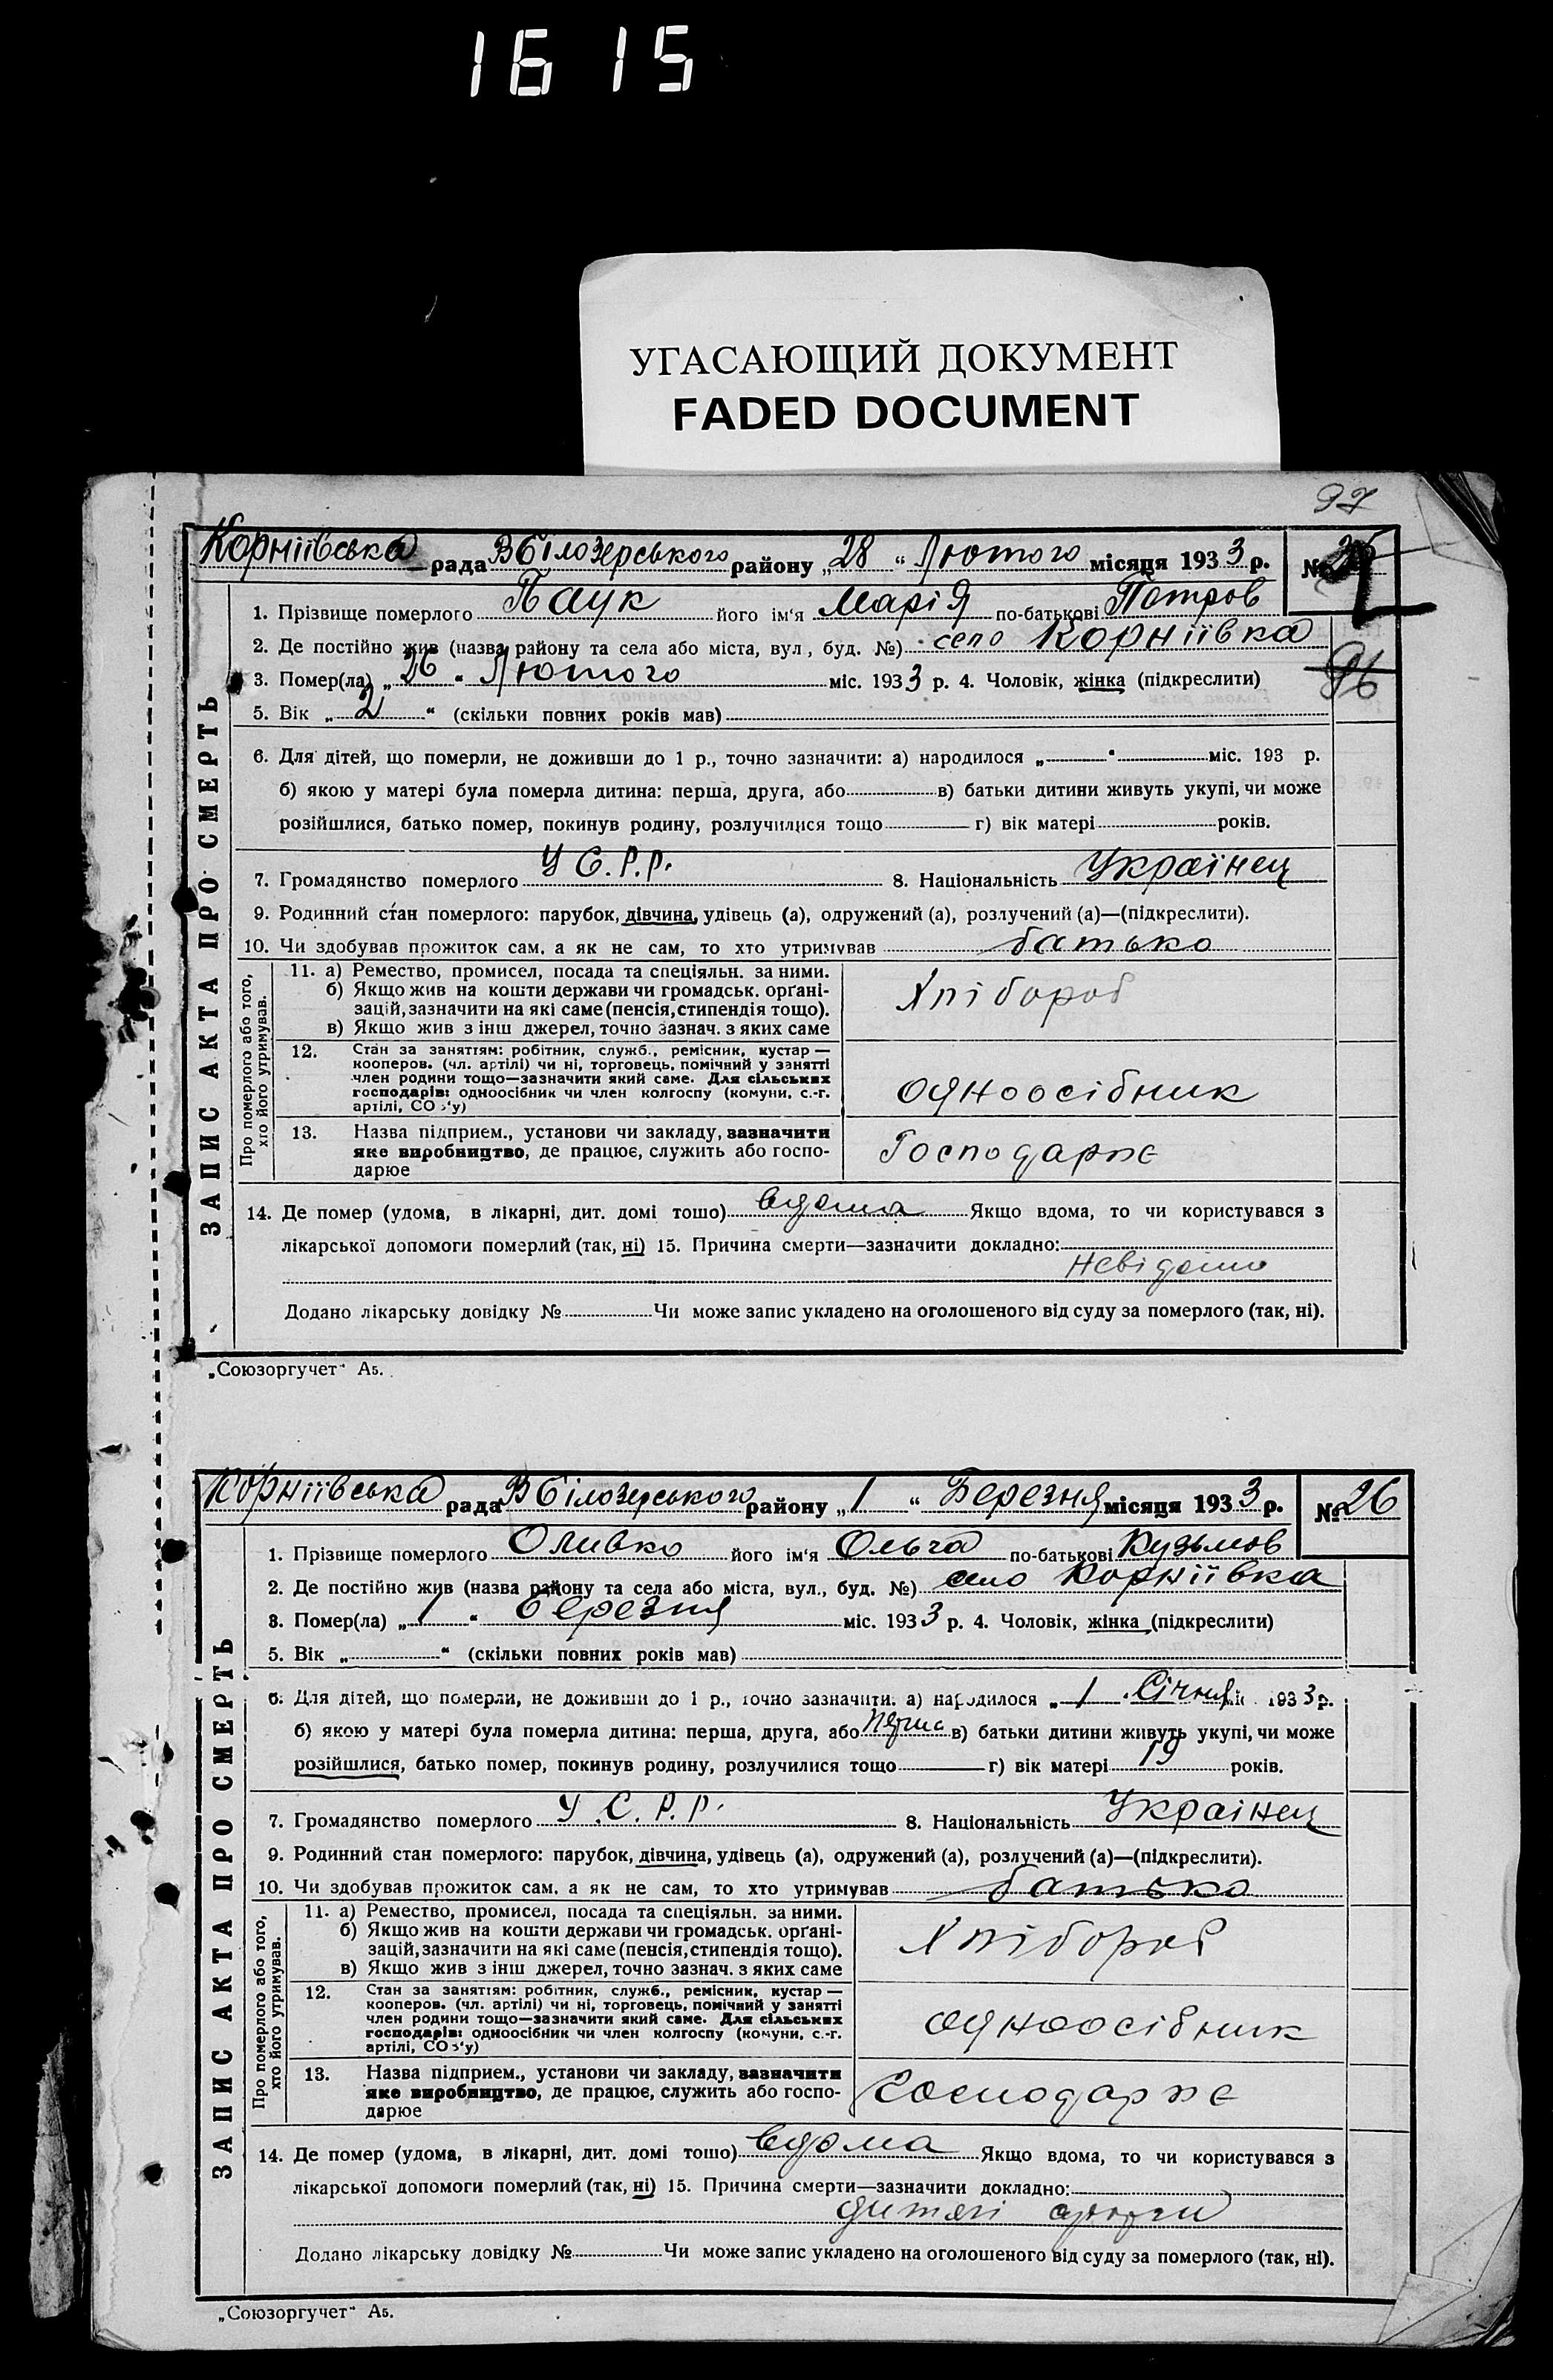 1615
УГАСАЮЩИЙ ДОКУМЕНТ
FADED DOCUMENT
97
Корніївська рада ВБілозерського району „28“ Лютого місяця 1933 р. №
ЗАПИС АКТА ПРО СМЕРТЬ
1. Прізвище померлого Паук його ім‘я Марія по-батькові Петров
2. Де постійно жив (назва району та села або міста, вул, буд. №) село Корніївка
96
3. Помер(ла) „26“ Лютого міс. 1933 р. 4. Чоловік, жінка (підкреслити)
5. Вік „2“ (скільки повних років мав)
6. Для дітей, що померли, не доживши до 1 р., точно зазначити: а) народилося „ “ міс. 193 р.
б) якою у матері була померла дитина: перша, друга, або в) батьки дитини живуть укупі, чи може
розійшлися, батько помер, покинув родину, розлучилися тощо г) вік матері років.
7. Громадянство померлого У С.Р.Р. 8. Національність Українец
9. Родинний стан померлого: парубок, дівчина, удівець (а), одружений (а), розлучений (а)—(підкреслити).
10. Чи здобував прожиток сам, а як не сам, то хто утримував батько
Про померлого або того, хто його утримував.
11. а) Ремество, промисел, посада та спеціяльн. за ними.
б) Якщо жив на кошти держави чи громадськ. органі-
зацій, зазначити на які саме (пенсія, стипендія тощо).
в) Якщо жив з інш джерел, точно зазнач. з яких саме
Хлібороб
12. Стан за заняттям: робітник, служб., ремісник, кустар —
кооперов. (чл. артілі) чи ні, торговець, помічний у занятті
член родини тощо—зазначити який саме. Для сільських
господарів: одноосібник чи член колгоспу (комуни, с.-г.
артілі, СОЗ‘у)
одноосібник
13. Назва підприєм., установи чи закладу, зазначити
яке виробництво, де працює, служить або госпо-
дарює
Господарює
14. Де помер (удома, в лікарні, дит. домі тощо) вдома Якщо вдома, то чи користувався з
лікарської допомоги померлий (так, ні) 15. Причина смерти—зазначити докладно:
невідомо
Додано лікарську довідку № Чи може запис укладено на оголошеного від суду за померлого (так, ні).
„Союзоргучет“ А5.
Корніївська рада ВБілозерського району „1“ Березня місяця 1933 р. № 26
ЗАПИС АКТА ПРО СМЕРТЬ
1. Прізвище померлого Оливко його ім‘я Ольга по-батькові Кузьмов
2. Де постійно жив (назва району та села або міста, вул., буд. №) село Корніївка
3. Помер(ла) „1“ березня міс. 1933 р. 4. Чоловік, жінка (підкреслити)
5. Вік „ “ (скільки повних років мав)
6. Для дітей, що померли, не доживши до 1 р., точно зазначити: а) народилося „1“ Січня міс. 1933 р.
б) якою у матері була померла дитина: перша, друга, або перша в) батьки дитини живуть укупі, чи може
розійшлися, батько помер, покинув родину, розлучилися тощо г) вік матері 19 років.
7. Громадянство померлого У.С.Р.Р. 8. Національність Українец
9. Родинний стан померлого: парубок, дівчина, удівець (а), одружений (а), розлучений (а)—(підкреслити).
10. Чи здобував прожиток сам, а як не сам, то хто утримував батько
Про померлого або того, хто його утримував.
11. а) Ремество, промисел, посада та спеціяльн. за ними.
б) Якщо жив на кошти держави чи громадськ. органі-
зацій, зазначити на які саме (пенсія, стипендія тощо).
в) Якщо жив з інш джерел, точно зазнач. з яких саме
Хлібороб
12. Стан за заняттям: робітник, служб., ремісник, кустар —
кооперов. (чл. артілі) чи ні, торговець, помічний у занятті
член родини тощо—зазначити який саме. Для сільських
господарів: одноосібник чи член колгоспу (комуни, с.-г.
артілі, СОЗ‘у)
одноосібник
13. Назва підприєм., установи чи закладу, зазначити
яке виробництво, де працює, служить або госпо-
дарює
Господарює
14. Де помер (удома, в лікарні, дит. домі тошо) вдома Якщо вдома, то чи користувався з
лікарської допомоги померлий (так, ні) 15. Причина смерти—зазначити докладно:
Додано лікарську довідку № Чи може запис укладено на оголошеного від суду за померлого (так, ні).
„Союзоргучет“ А5.